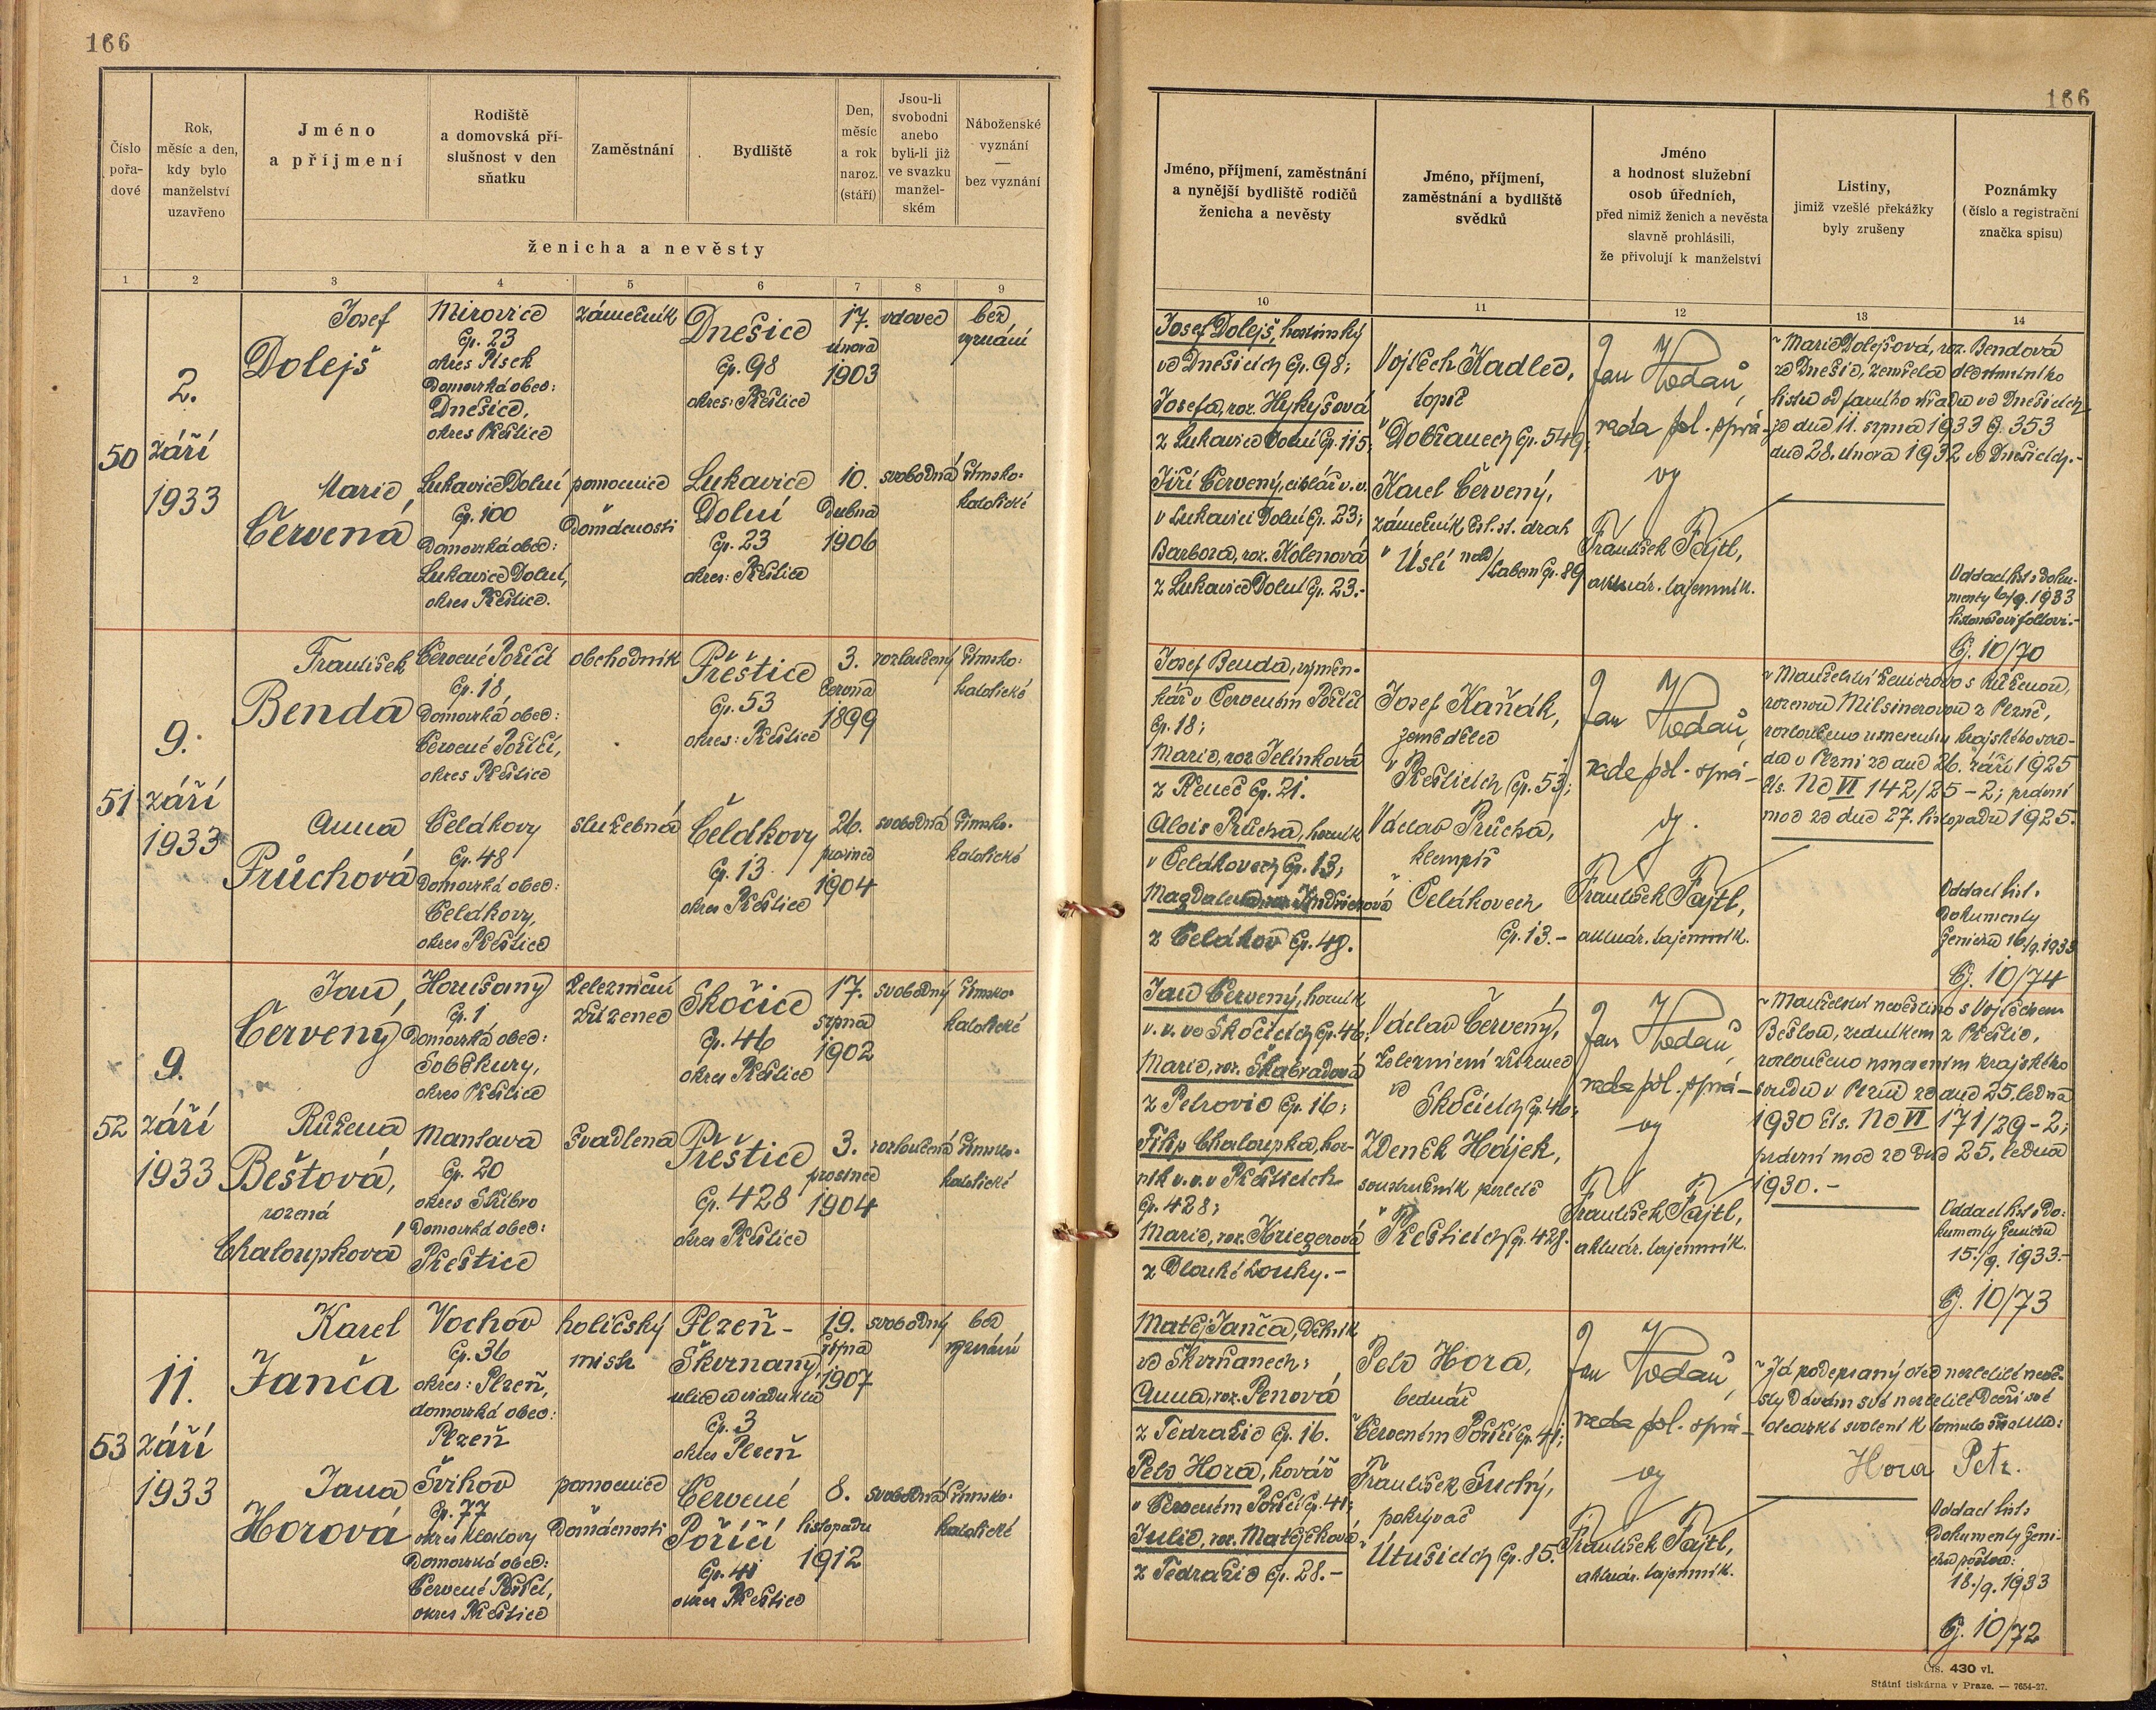 166
Číslo pořa- dové
Rok, měsíc a den, kdy bylo manželství uzavřeno
Jméno a příjmení
Rodiště a domovská pří- slušnost v den sňatku
Zaměstnání
Bydliště
Den, měsíc a rok naroz. (stáří)
Jsou-li svobodni anebo byli-li již ve svazku manžel- ském
Náboženské vyznání — bez vyznání
ženicha a nevěsty
1 2 3 4 5 6 7 8 9
50
2.
září
1933
Josef
Dolejš
Mirovice
Čp. 23
okres Písek
Domovská obec:
Dnešice,
okres Přeštice
zámečník
Dnešice
čp. 98
okres: Přeštice
17.
února
1903
vdovec
bez
vyznání
Marie
Červená
Lukavice Dolní
Čp. 100
Domovská obec:
Lukavice Dolní,
okres Přeštice.
pomocnice
v domácnosti
Lukavice
Dolní
Čp. 23
okres: Přeštice
10.
dubna
1906
svobodná
římsko-
katolické
51
9.
září
1933
František
Benda
Červené Poříčí
Čp. 18,
Domovská obec:
Červené Poříčí,
okres Přeštice
obchodník
Přeštice
Čp. 53
okres: Přeštice
3.
června
1899
rozloučený
římsko-
katolické
Anna
Průchová
Čelákovy
Čp. 48
Domovská obec:
Čelákovy,
okres Přeštice
služebná
Čelákovy
Čp. 13
okres Přeštice
26.
prosince
1904
svobodná
římsko-
katolické
52
9.
září
1933
Jan
Červený
Horušany
Čp. 1
Domovská obec:
Soběkury,
okres Přeštice
železniční
zřízenec
Skočice
Čp. 46
okres Přeštice
17.
srpna
1902
svobodný
římsko-
katolické
Růžena
Beštová,
rozená
Chaloupková
Mantava
Čp. 20
okres Stříbro
Domovská obec:
Přeštice
švadlena
Přeštice
Čp. 428
okres Přeštice
3.
prosince
1904
rozloučená
římsko-
katolické
53
11.
září
1933
Karel
Janča
Vochov
Čp. 36
okres: Plzeň,
domovská obec:
Plzeň
holičský
mistr
Plzeň-
Škvrňany,
ulice u viaduktu
Čp. 3
okres Plzeň
19.
října
1907
svobodný
bez
vyznání
Jana
Horová
Švihov
Čp. 77
okres Klatovy
Domovská obec:
Červené Poříčí,
okres Přeštice
pomocnice
v domácnosti
Červené
Poříčí
Čp. 41
okres Přeštice
8.
listopadu
1912
svobodná
římsko-
katolické
166
Jméno, příjmení, zaměstnání a nynější bydliště rodičů ženicha a nevěsty
Jméno, příjmení, zaměstnání a bydliště svědků
Jméno a hodnost služební osob úředních, před nimiž ženich a nevěsta slavně prohlásili, že přivolují k manželství
Listiny, jimiž vzešlé překážky byly zrušeny
Poznámky (číslo a registrační značka spisu)
10 11 12 13 14
Josef Dolejš, hostinský
ve Dnešicích čp. 98;
Josefa, roz. Hykyšová
z Lukavice Dolní čp. 115;
Jiří Červený, cihlář v.v.
v Lukavici Dolní čp. 23;
Barbora, roz. Kolenová
z Lukavice Dolní čp. 23.-
Vojtěch Kadlec,
topič
v Dobřanech čp. 549;
Karel Červený,
zámečník čsl. st. drah
v Ústí nad/Labem čp. 89
Jan Hodaň,
rada pol. sprá-
vy
František Fajtl,
aktuár. tajemník.
Marie Dolejšová, roz. Bendová
ze Dnešic, zemřela dle úmrtního
listu od farního úřadu ve Dnešicích
ze dne 11. srpna 1933 čj. 353
dne 28. února 1932 ve Dnešicích.-
Oddací list s doku-
menty 6/9. 1933
Čj. 10/70
Josef Benda, výměn-
kář v Červeném Poříčí
čp. 18;
Marie, roz. Jelínková
z Řenče čp. 21.
Alois Průcha, horník
v Čelákovech čp. 13;
Magdalena, roz. Jindřichová
z Čelákov čp. 48.
Josef Kaňák,
zemědělec
v Přešticích čp. 53;
Václav Průcha,
klempíř
v Čelákovech
čp. 13.-
Jan Hodaň,
rada pol. sprá-
vy.
František Fajtl,
aktuár. tajemník.
Manželství ženichovo s Růženou,
rozenou Milsimerovou z Plzně,
rozloučeno usnesením krajského sou-
du v Plzni ze dne 26. září 1925
čís. Nc VI 142/25-2; právní
moc ze dne 27. listopadu 1925.
Oddací list.
Dokumenty
ženicha 16./9. 1933
Čj. 10/74
Jan Červený, horník
v.v. ve Skočicích čp. 46;
Marie, roz. Škabradová
z Petrovic čp. 16;
Filip Chaloupka, hor-
ník v.v. v Přešticích
čp. 428;
Marie, roz. Kriegerová
z Dlouhé Louky.-
Václav Červený,
železniční zřízenec
ve Skočicích čp. 46;
Zdeněk Hájek,
soustružník
v Přešticích čp. 428.
Jan Hodaň,
rada pol. sprá-
vy
František Fajtl,
aktuár. tajemník.
Manželství nevěstino s Vojtěchem
Beštou, zedníkem z Přeštic,
rozloučeno usnesením krajského
soudu v Plzni ze dne 25. ledna
1930 čís. Nc VI 171/29-2;
právní moc ze dne 25. ledna
1930.-
Oddací list a do-
kumenty ženicha
15./9. 1933.-
Čj. 10/73
Matěj Janča, dělník
ve Škvrňanech;
Anna, roz. Penová
z Tedražic čp. 16.
Petr Hora, kovář
v Červeném Poříčí čp. 41;
Julie, roz. Matějčková
z Tedražic čp. 28.-
Petr Hora,
bednář
v Červeném Poříčí čp. 41;
František Suchý,
pokrývač
v Útušicích čp. 85.
Jan Hodaň,
rada pol. sprá-
vy
František Fajtl,
aktuár. tajemník.
Já podepsaný otec nezletilé nevě-
sty dávám své nezletilé dceři své
otcovské svolení k tomuto sňatku:
Hora Petr.
Oddací list s
dokumenty ženi-
cha poslán:
18./9. 1933
Čj. 10/72
Čís. 430 vl.
Státní tiskárna v Praze. — 7654-27.